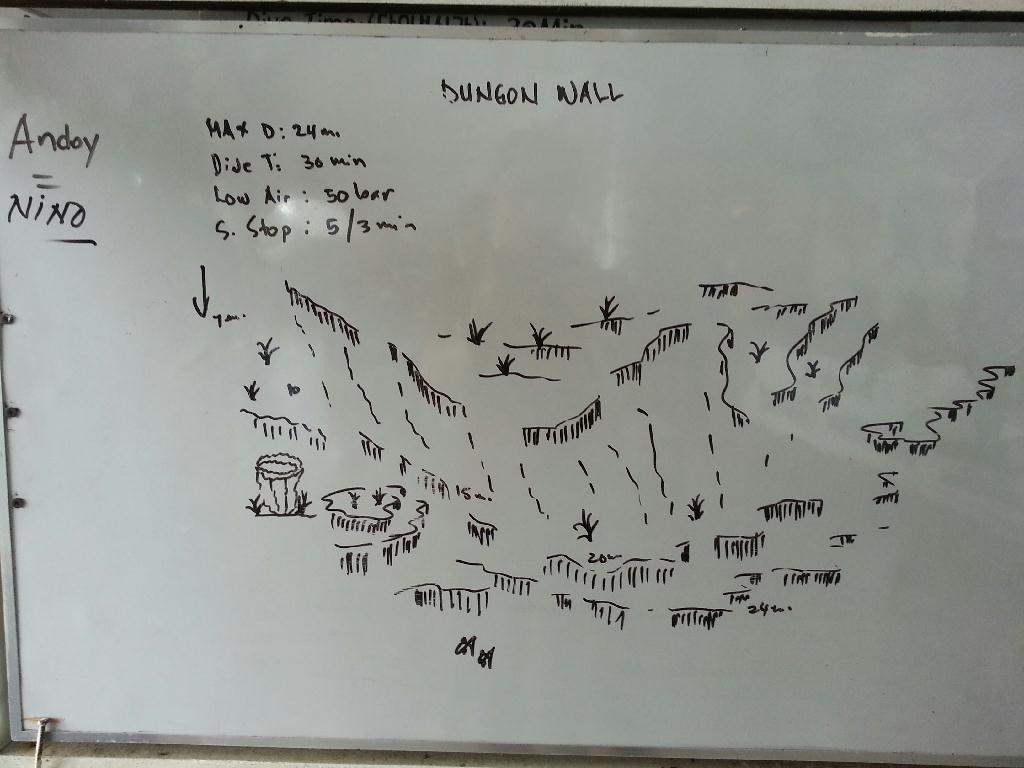 Dive Time (TFOTAL): 30Min
DUNGON WALL
Andoy
NINO
MAX D: 24m.
Dive T: 30 min
Low Air: 50 bar
S. Stop: 5/3 min
15m.
20m
24m.